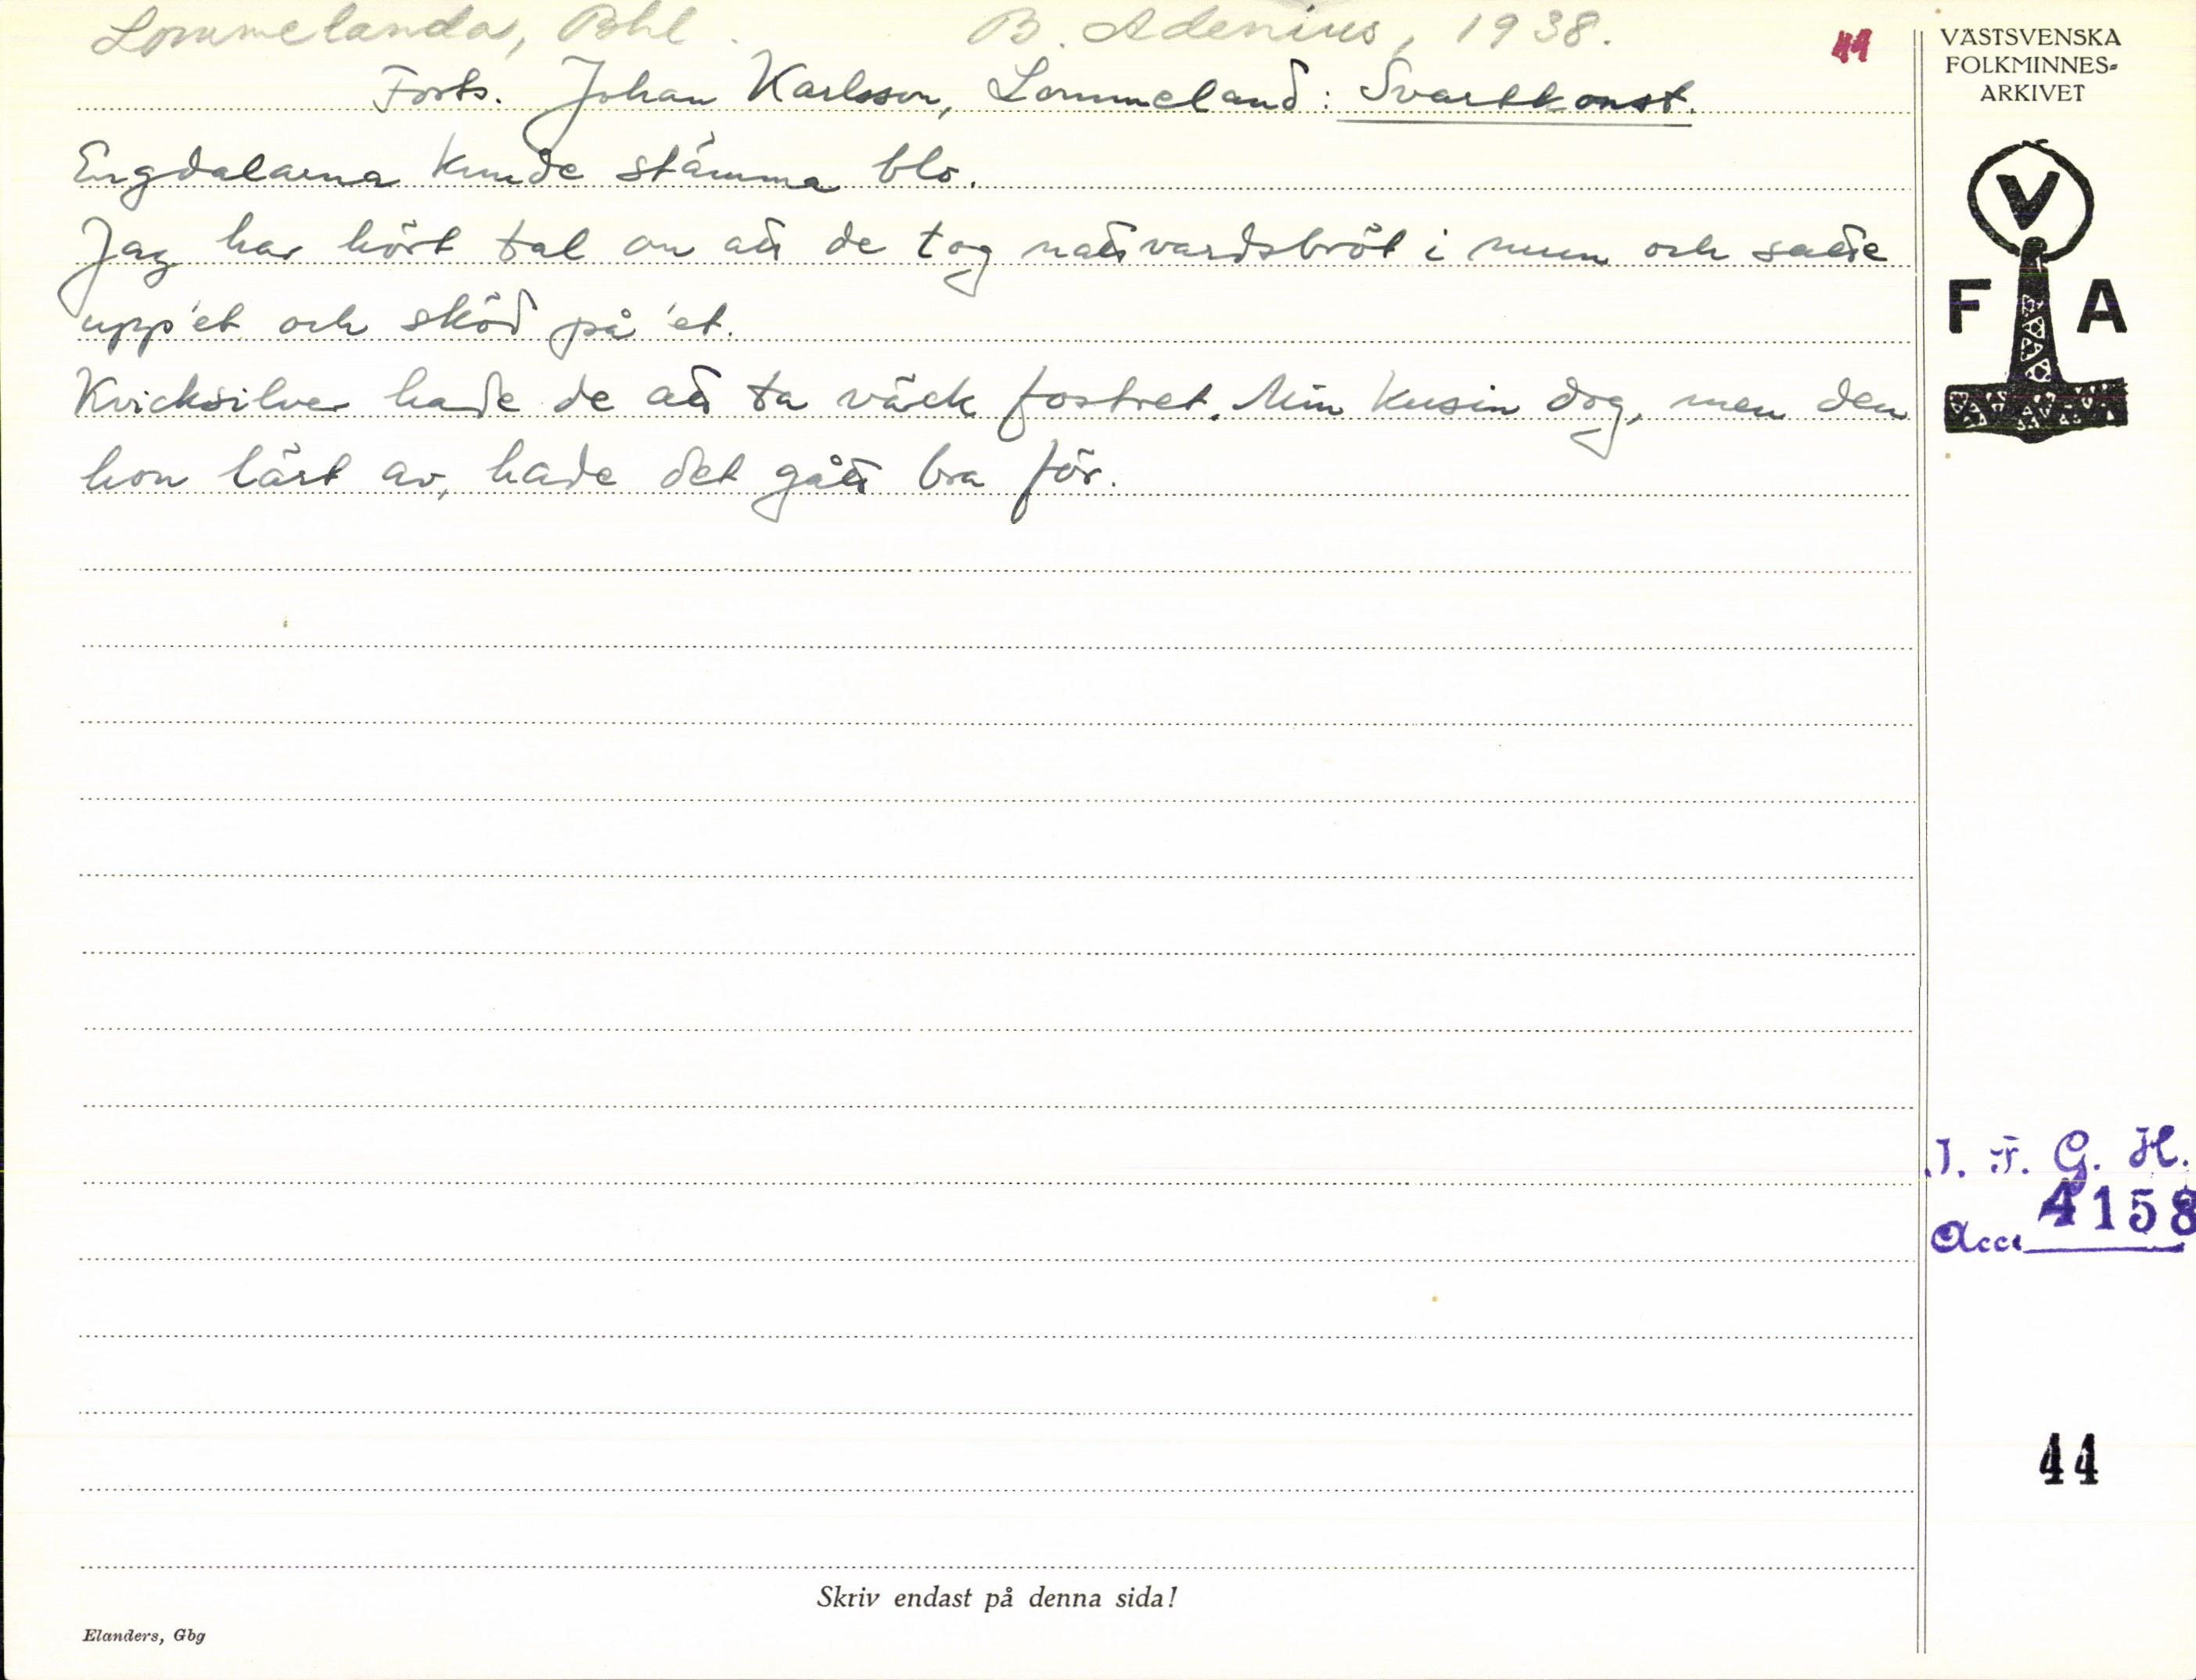 Lommelanda, Bhl. B. Adenius, 1938. 44
Forts. Johan Karlsson, Lommeland: Svartkonst.
Engdalarna kunde stämma blo.
Jag har hört tal om att de tog nattvardsbröt i mun och satte
upp'et och sköd på 'et.
Kvicksilver hade de att ta väck fostret. Min kusin dog, men den
hon lärt av, hade det gått bra för.
VÄSTSVENSKA
FOLKMINNES-
ARKIVET
V
F A
I. F. G. H.
Acc. 4158
44
Skriv endast på denna sida!
Elanders, Gbg